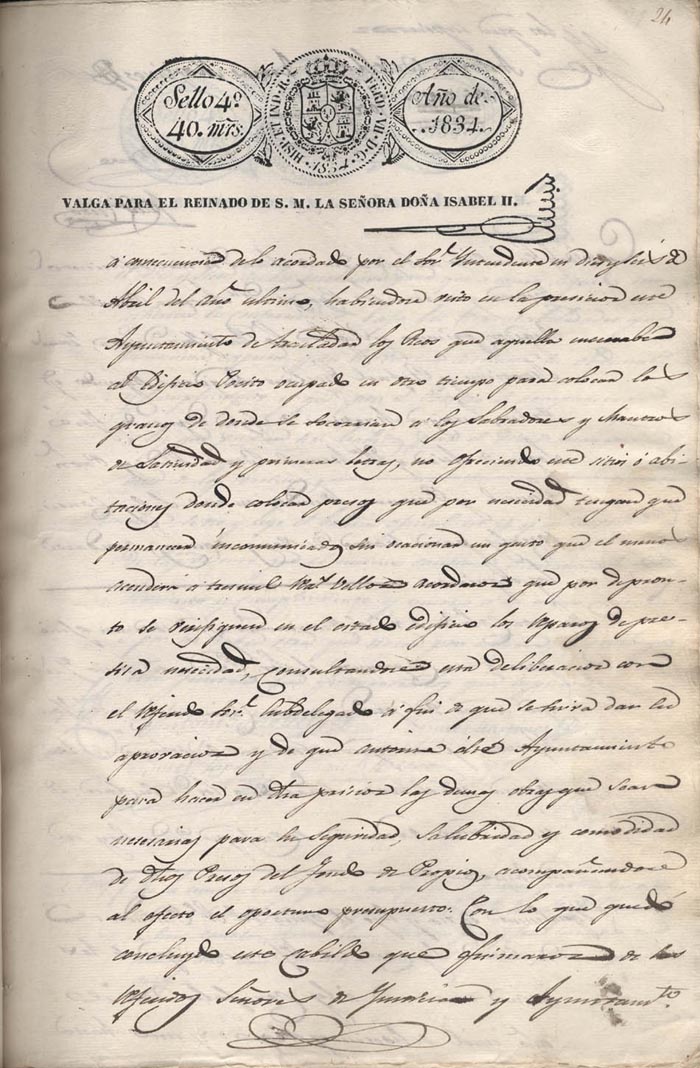 24
Sello 4º
40. mrs.
HISP. ET IND. R. FERD. VII. D. G. 1834.
Año de
1834.
VALGA PARA EL REINADO DE S. M. LA SEÑORA DOÑA ISABEL II.
á consecuencia de lo acordado por el Sor. Yntendente en diez y seis de
Abril del año ultimo, habiendose visto en la precision este
Ayuntamiento de trasladar los Reos que aquella encerraba
al Edificio Posito ocupado en otro tiempo para colocar los
granos de donde se socorrian á los Labradores y Maestros
de Latinidad y primeras letras, no ofreciendo este sitio ó abi-
taciones donde colocar presos que por necesidad tengan que
permanecer incomunicados sin ocasionar un gasto que el menos
acenderá á tres mil rs. vellon acordaron que por de pron-
to se verifiquen en el citado edificio los reparos de pre-
cisa necesidad, consultandose esta deliberacion con
el referido Sor. Subdelegado á fin de que se sirva dar su
aprovacion y de que autorise á este Ayuntamiento
para hacer en dha pricion las demas obras que sean
necesarias para la seguridad, salubridad y comodidad
de dhos Presos del fondo de Propios, acompañandose
al efecto el oportuno presupuesto. Con lo que quedó
concluydo este Cabildo que firmaron de los
referidos Señores de Justicia y Ayuntamto.